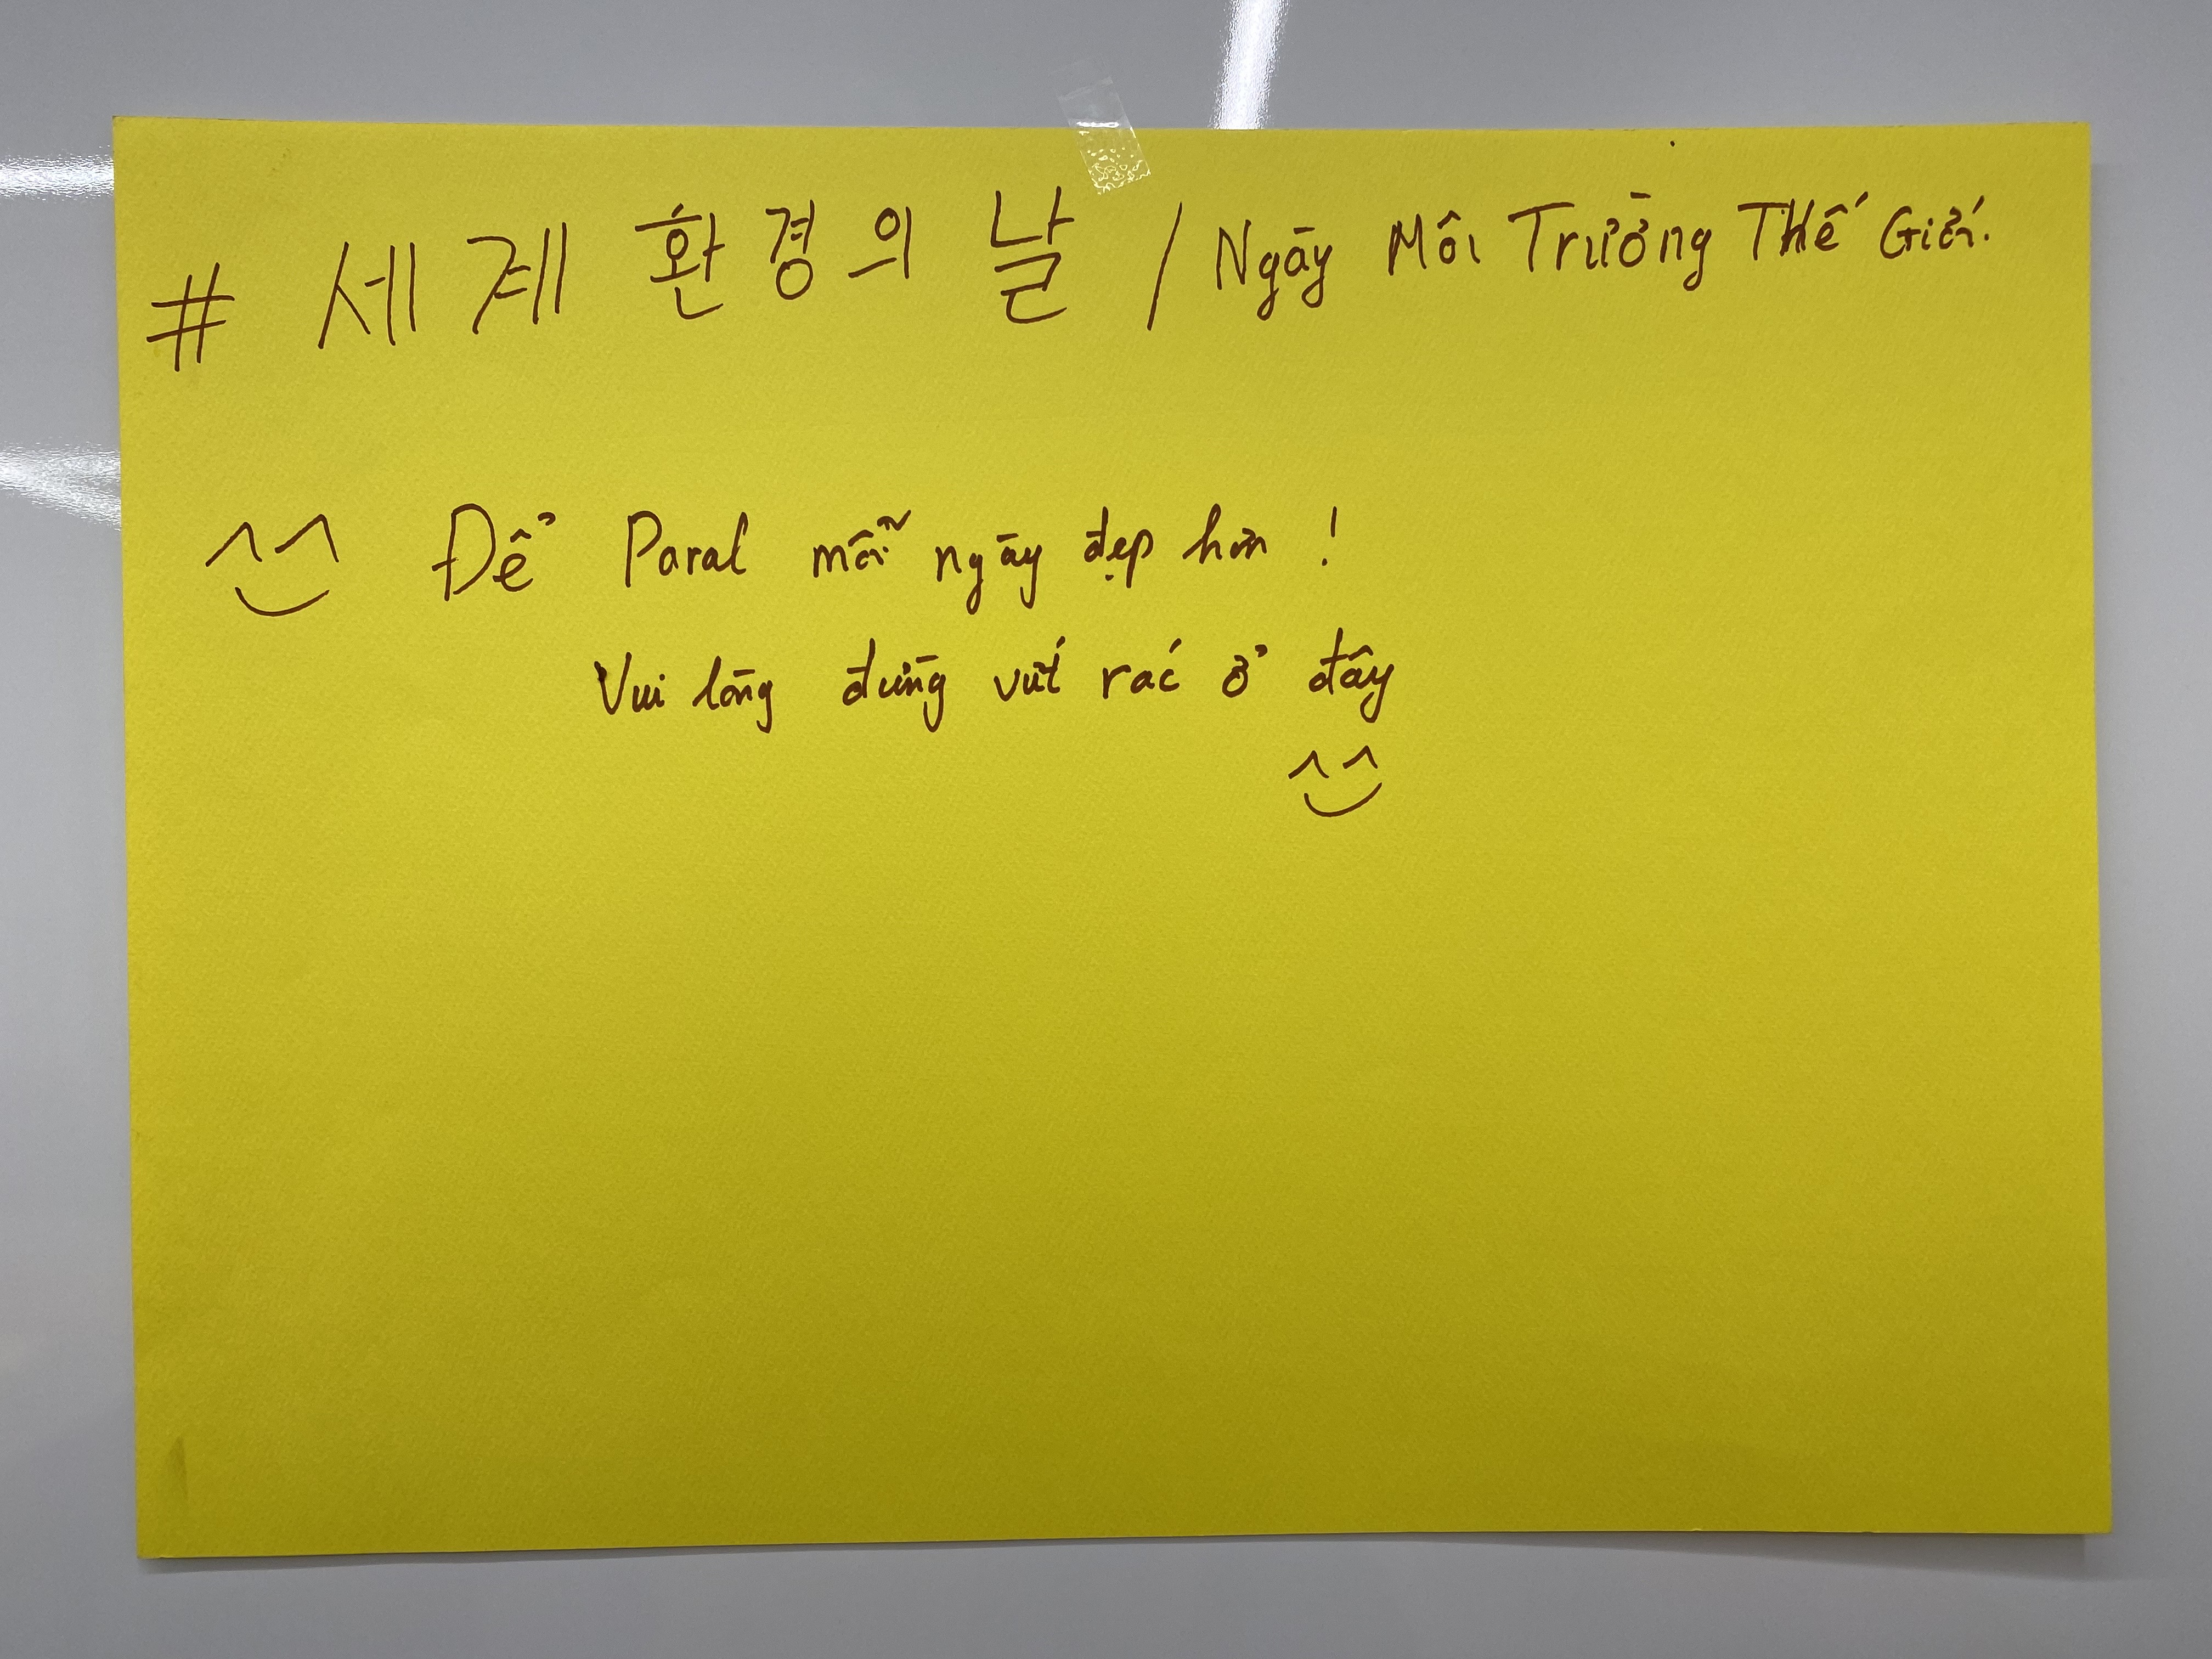 # 세계 환경의 날 / Ngày Môi Trường Thế Giới.
Để Paral mỗi ngày đẹp hơn !
Vui lòng đừng vứt rác ở đây